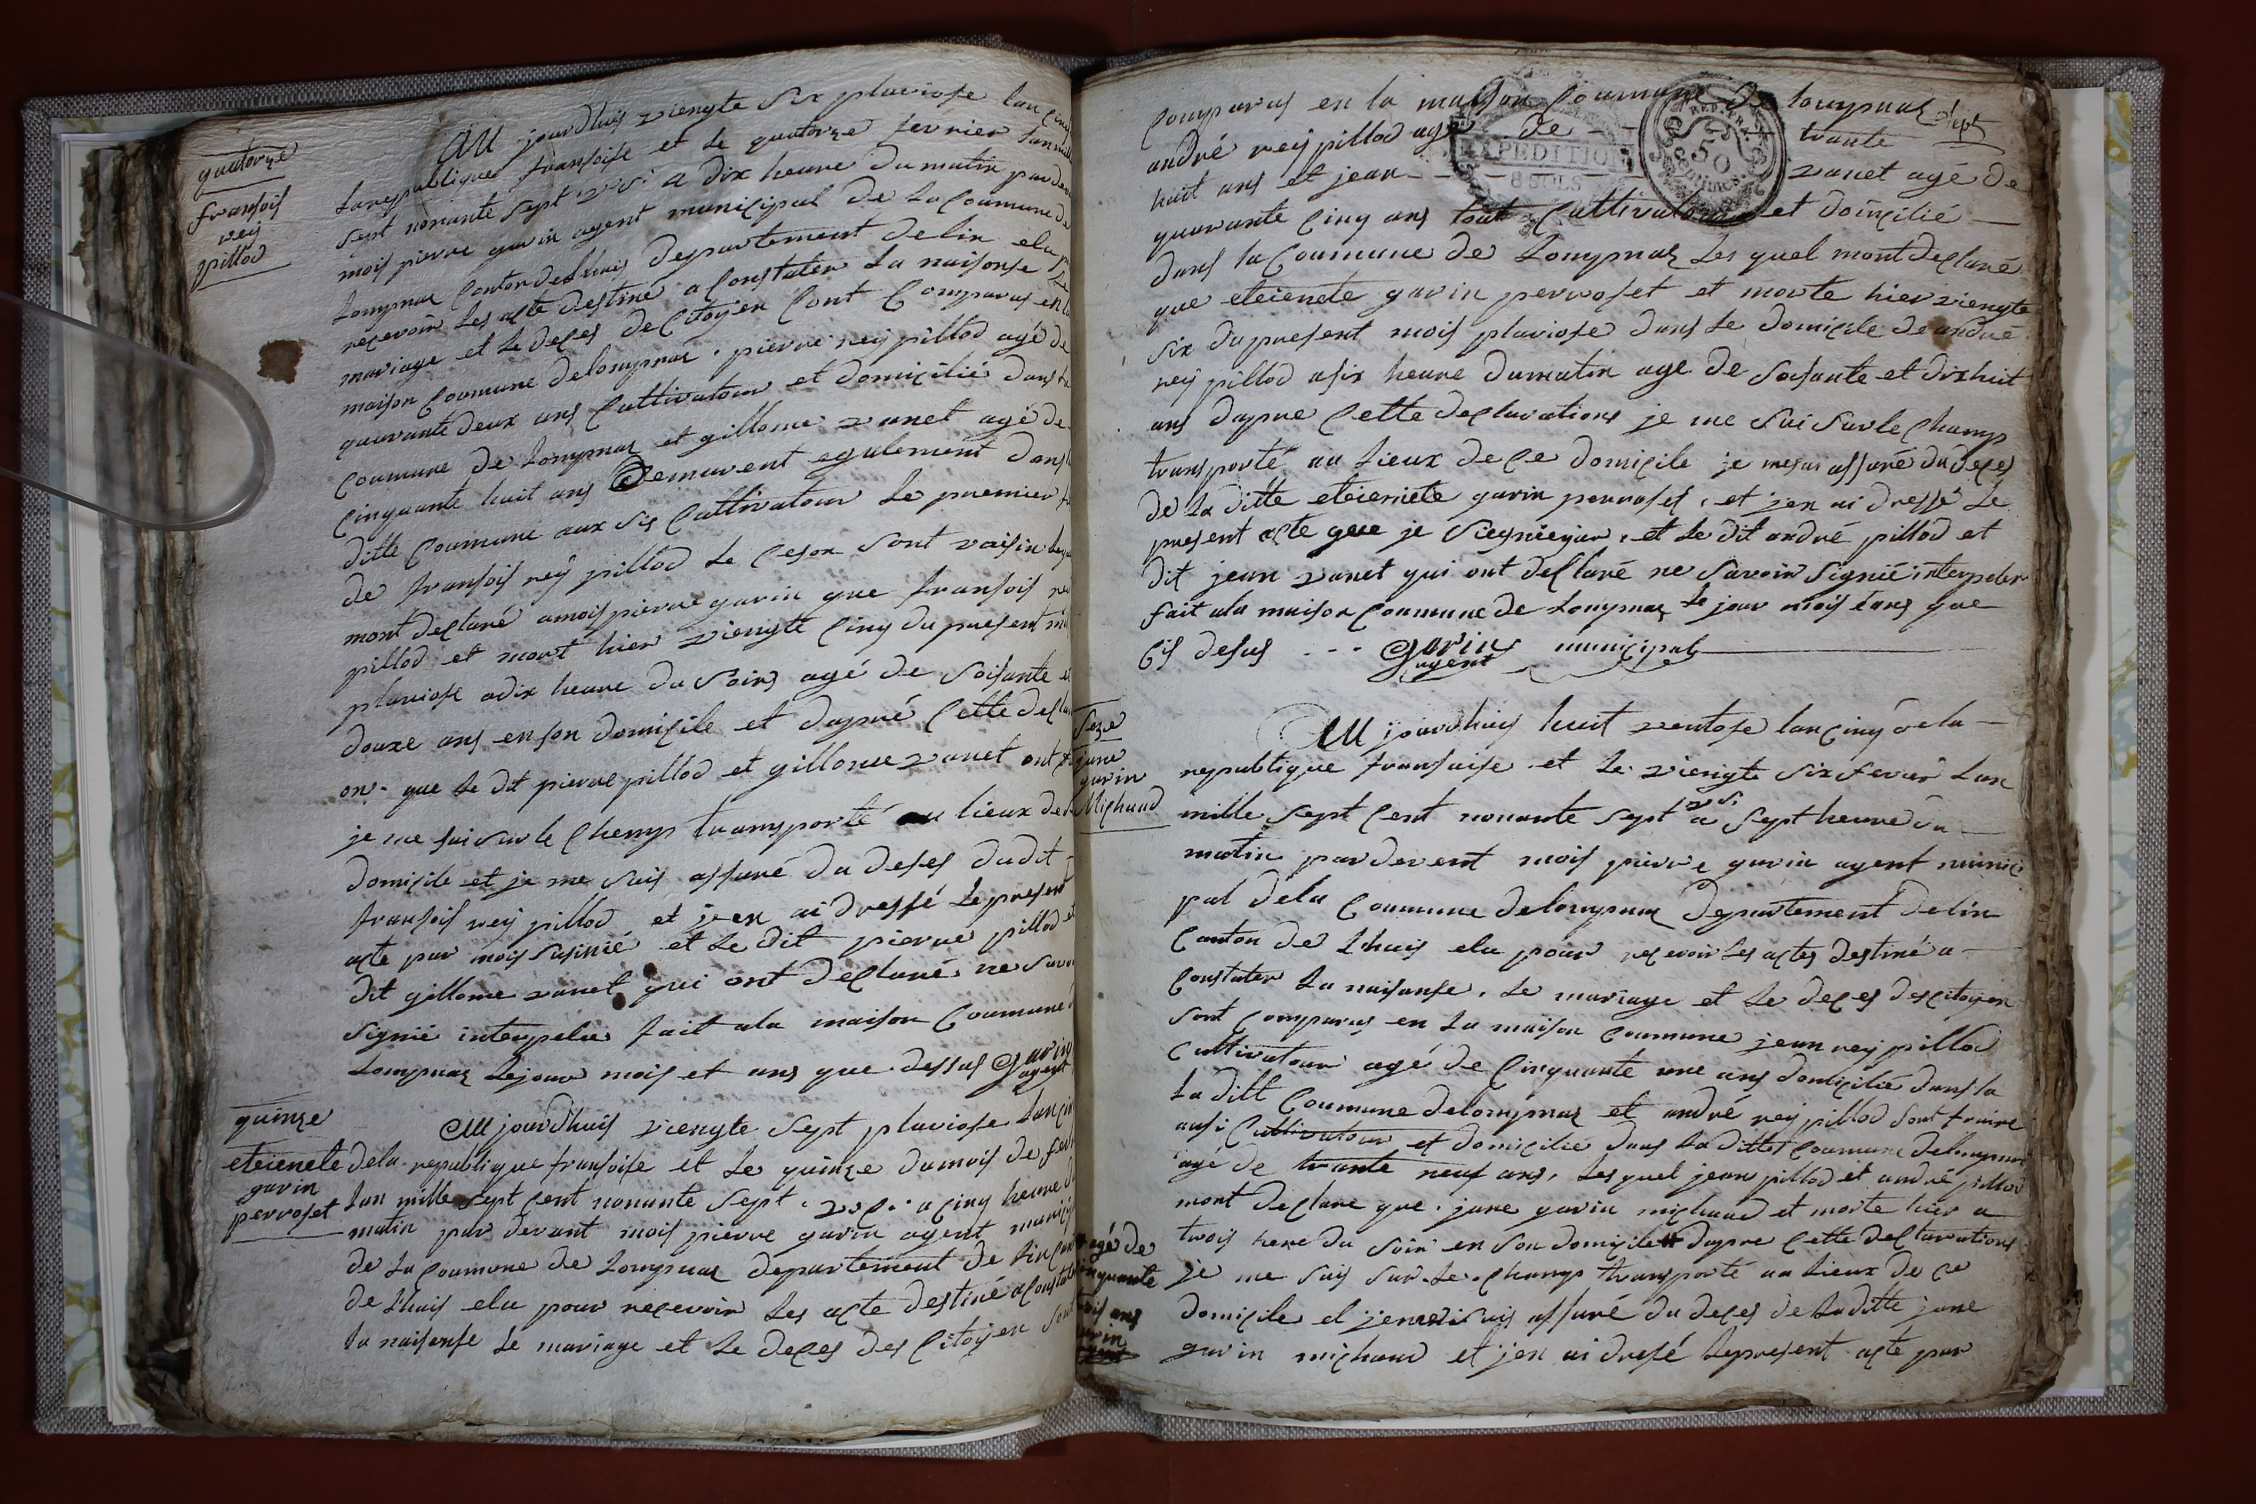 quatorze
fransois
rey
pillod
Au jourdhuis viengte six pluviose lan cinq
la republique fransoise et le quatorze fevrier lan mille
sept nonante sept v.s. a dix heure du matin par deva
mois pierre gavin agent municipal de la Coumune de
Lompnaz Canton de Lhuis departement de lin elu p
recevoir les acte destiné a Constater la naisonse le
mariage et le deces de Citoyen Cont Comparus en la
maison Coumune de lompnaz . pierre rey pillod agé de
quarante deux ans Cultivatour et domicilié dans la
Coumune de Lompnaz et gillome vanet agé de
Cinquante huit ans Demeurent egalement dans l
ditte Coumune aux sis Cultivatour le premier fr
de fransois rey pillod le Ceson Sont vaisin lesqu
mont declaré a mois pierre gavin que fransois rey
pillod et mort hier viengte Cinq du present mo
pluviose a dix heure du Soir agé de Soisante et
douze ans en son domicile et dapré Cette declar
on . que le dit pierre pillod et gillome vanet ont f
je me sui sur le Chemp transporté au lieux de Ce
domicile et je me suis assuré du deses du dit
fransois rey pillod et jen ai dressé le present
acte par mois Susinié et le dit pierre pillod et
dit gillome vanet qui ont declaré ne Savoir
Signié interpelu fait a la maison Coumune d
Lompnaz le jour mois et ans que dessus gavin
agent
quinze
eteienete
gavin
perroset
Au jourdhuis viengte Sept pluviose lan cin
de la republique fransoise et le quinze du mois de fev
lan mille Sept Cent nonante Sept . v.s. a Cinq heure d
matin par devant mois pierre gavin agent municip
de la Coumune de Lompnaz departement de lin Cant
de Lhuis elu pour recevoir les acte destiné a Constater
la naisonse le mariage et le deces des Citoyen Sont
Comparus en la maison Coumune de lompnaz
Sept
EXPEDITION
8 SOLS
REP. FRA.
50
andré rey pillod agé de trante
huit ans et jean vanet agé de
quarante Cinq ans tout Cultivatour et domicilié
dans la Coumune de Lompnaz les quel mont declaré
que eteienete gavin perroset et morte hier viengte
six du present mois pluviose dans le domicile de andré
rey pillod a six heure du matin age de Soisante et dix huit
ans dapre Cette declarations je me Sui Sur le Champ
transporté au lieux de Ce domicile je me suis assuré du deces
de la ditte eteieniete gavin perroset , et jen ai dressé le
present acte que je Siegniégav . et le dit andré pillod et
dit jean vanet qui ont declaré ne Savoir Signié interpeler
fait a la maison Coumune de Lompnaz le jour mois et ans que
Cis desus - - - gavin municipal
agent
Seze
jane
gavin
Michaud
Au jourdhuis huit ventose lan Cinq de la
republique fransaise et le viengte six fevrier lan
mille Sept Cent nonante Sept v.s. a Sept heure du
matin par devent mois pierre gavin agent munici
pal de la Coumune de lompnaz Departement de lin
Canton de Lhuis elu pour recevoir les actes destiné a
Constater la naisanse , le mariage et le deces des Citoyen
Sont Comparus en la maison Coumune jean rey pillod
Cultivatour agé de Cinquante une ans domicilié dans la
La ditt Coumune de lompnaz et andré rey pillod Sont fraire
ausi Cultivatour et domicilie dans la ditte Coumune de lompnaz
agé de trante neuf ans , les quel jean pillod et andré pillod
mont declare que . jane gavin michaud et morte hier a
trois here du Soir en Son domicile et dapre Cette declarations
je me suis sur le champ transporté au lieux de Ce
domicile et je me suis assuré du deces de la ditte jane
gavin michaud et jen ai dresé le present acte par
agé de
cinquante
trois ans
gavin
agent